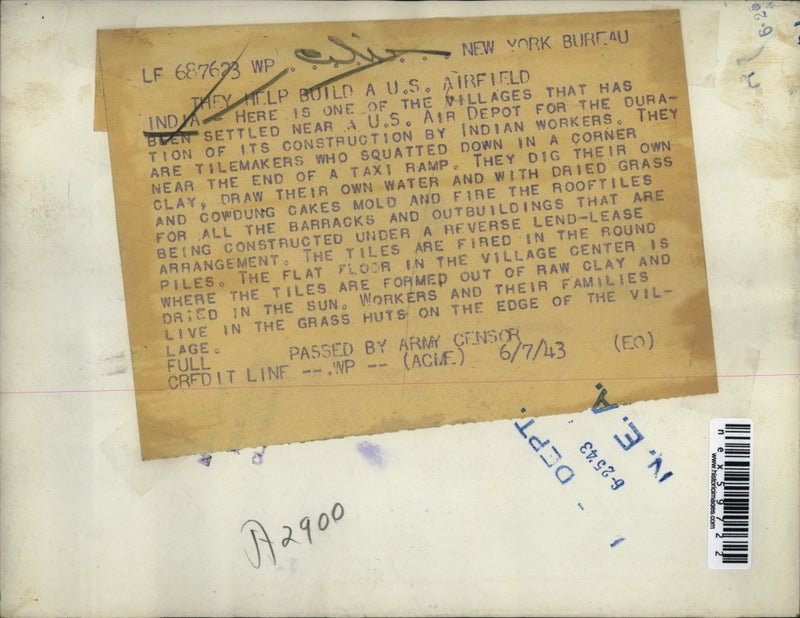 LF 687623 WP . . . . . . . . NEW YORK BUREAU
THEY HELP BUILD A U.S. AIRFIELD
INDIA - HERE IS ONE OF THE VILLAGES THAT HAS
BEEN SETTLED NEAR A U.S. AIR DEPOT FOR THE DURA-
TION OF ITS CONSTRUCTION BY INDIAN WORKERS. THEY
ARE TILEMAKERS WHO SQUATTED DOWN IN A CORNER
NEAR THE END OF A TAXI RAMP. THEY DIG THEIR OWN
CLAY, DRAW THEIR OWN WATER AND WITH DRIED GRASS
AND COWDUNG CAKES MOLD AND FIRE THE ROOFTILES
FOR ALL THE BARRACKS AND OUTBUILDINGS THAT ARE
BEING CONSTRUCTED UNDER A REVERSE LEND-LEASE
ARRANGEMENT. THE TILES ARE FIRED IN THE ROUND
PILES. THE FLAT FLOOR IN THE VILLAGE CENTER IS
WHERE THE TILES ARE FORMED OUT OF RAW CLAY AND
DRIED IN THE SUN. WORKERS AND THEIR FAMILIES
LIVE IN THE GRASS HUTS ON THE EDGE OF THE VIL-
LAGE. PASSED BY ARMY CENSOR
FULL
CREDIT LINE -- WP -- (ACME) 6/7/43 (EO)
DEPT.
6-25-43
N. E. A.
A2900
www.historicimages.com
nex59722